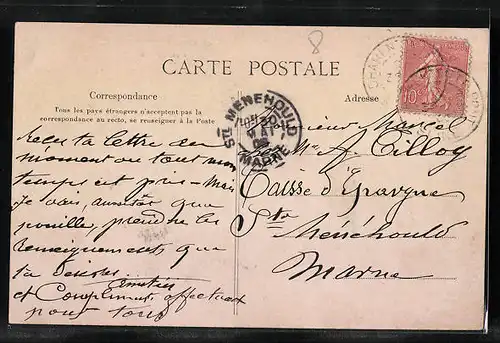 8
CARTE POSTALE
Correspondance
Tous les pays étrangers n'acceptent pas la
correspondance au recto, se renseigner à la Poste
Adresse
STE MENEHOULD
MARNE
10
Reçu ta lettre au
moment ou tout mon
temps est pris - Mais
Je vais, aussitôt que
prendre les
renseignements que
tu
et Compliments affectueux
pour tous
Monsieur Marcel
Tilloy
Caisse d'Epargne
Ste
Ménéhould
Marne